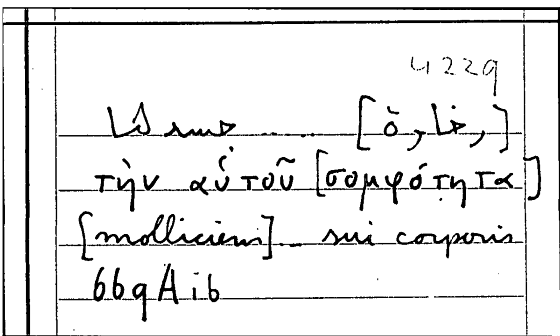 4229
suus ..... [
τὴν αὑτοῦ [σομφότητα]
[molliciem] .. sui corporis
669A16